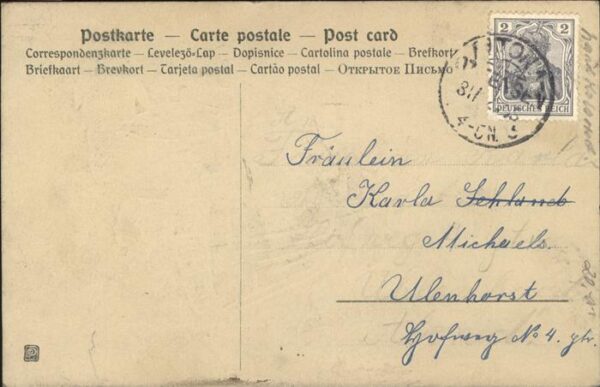 Postkarte – Carte postale – Post card
Correspondenzkarte – Levelező-Lap – Dopisnice – Cartolina postale – Brefkort
Briefkaart – Brevkort – Tarjeta postal – Cartão postal – Открытое Письмо
2 2
DEUTSCHES REICH
4-5N.
Fräulein
Karla Schlandt
Michaels.
Uhlenhorst
Hofweg No 4. ptr.